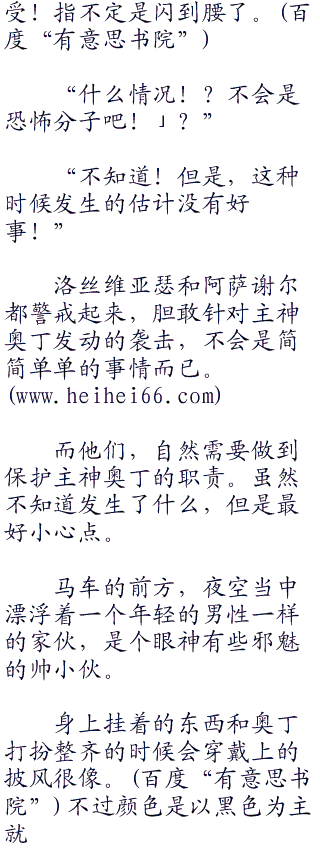 受！指不定是闪到腰了。(百
度“有意思书院”)
“什么情况！？不会是
恐怖分子吧！」？”
“不知道！但是，这种
时候发生的估计没有好
事！”
洛丝维亚瑟和阿萨谢尔
都警戒起来，胆敢针对主神
奥丁发动的袭击，不会是简
简单单的事情而已。
(www.heihei66.com)
而他们，自然需要做到
保护主神奥丁的职责。虽然
不知道发生了什么，但是最
好小心点。
马车的前方，夜空当中
漂浮着一个年轻的男性一样
的家伙，是个眼神有些邪魅
的帅小伙。
身上挂着的东西和奥丁
打扮整齐的时候会穿戴上的
披风很像。(百度“有意思书
院”)不过颜色是以黑色为主
就